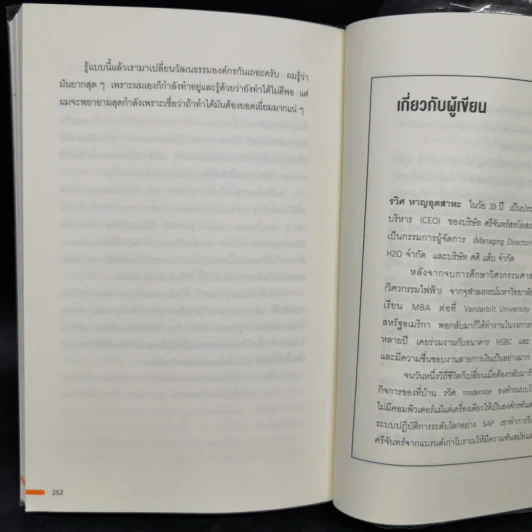 รู้แบบนี้แล้วเรามาเปลี่ยนวัฒนธรรมองค์กรกันเถอะครับ ผมรู้ว่า
มันยากสุด ๆ เพราะผมเองก็กำลังทำอยู่และรู้ด้วยว่ายังทำได้ไม่ดีพอ แต่
ผมจะพยายามสุดกำลังเพราะเชื่อว่าถ้าทำได้มันต้องยอดเยี่ยมมากแน่ ๆ
252
เกี่ยวกับผู้เขียน
รวิศ หาญอุตสาหะ ในวัย 39 ปี เป็นประ
บริหาร (CEO) ของบริษัท ศรีจันทร์สหโอสถ
เป็นกรรมการผู้จัดการ (Managing Director)
H2O จำกัด และบริษัท ศศิ แล็บ จำกัด
หลังจากจบการศึกษาวิศวกรรมศาส
(วิศวกรรมไฟฟ้า) จากจุฬาลงกรณ์มหาวิทยาลัย
เรียน MBA ต่อที่ Vanderbilt University
สหรัฐอเมริกา พอกลับมาก็ได้ทำงานในวงการ
หลายปี เคยร่วมงานกับธนาคาร HSBC และ
และมีความชื่นชอบงานสายการเงินเป็นอย่างมาก
จนวันหนึ่งวิถีชีวิตก็เปลี่ยนเมื่อต้องกลับมารับ
กิจการของที่บ้าน รวิศ modernize องค์กรแบบ
ไม่มีคอมพิวเตอร์แม้แต่เครื่องเดียวให้เป็นองค์กรทันส
ระบบปฏิบัติการระดับโลกอย่าง SAP เขาทำการรี
ศรีจันทร์จากแบรนด์เก่าโบราณให้มีความทันสมัยแล